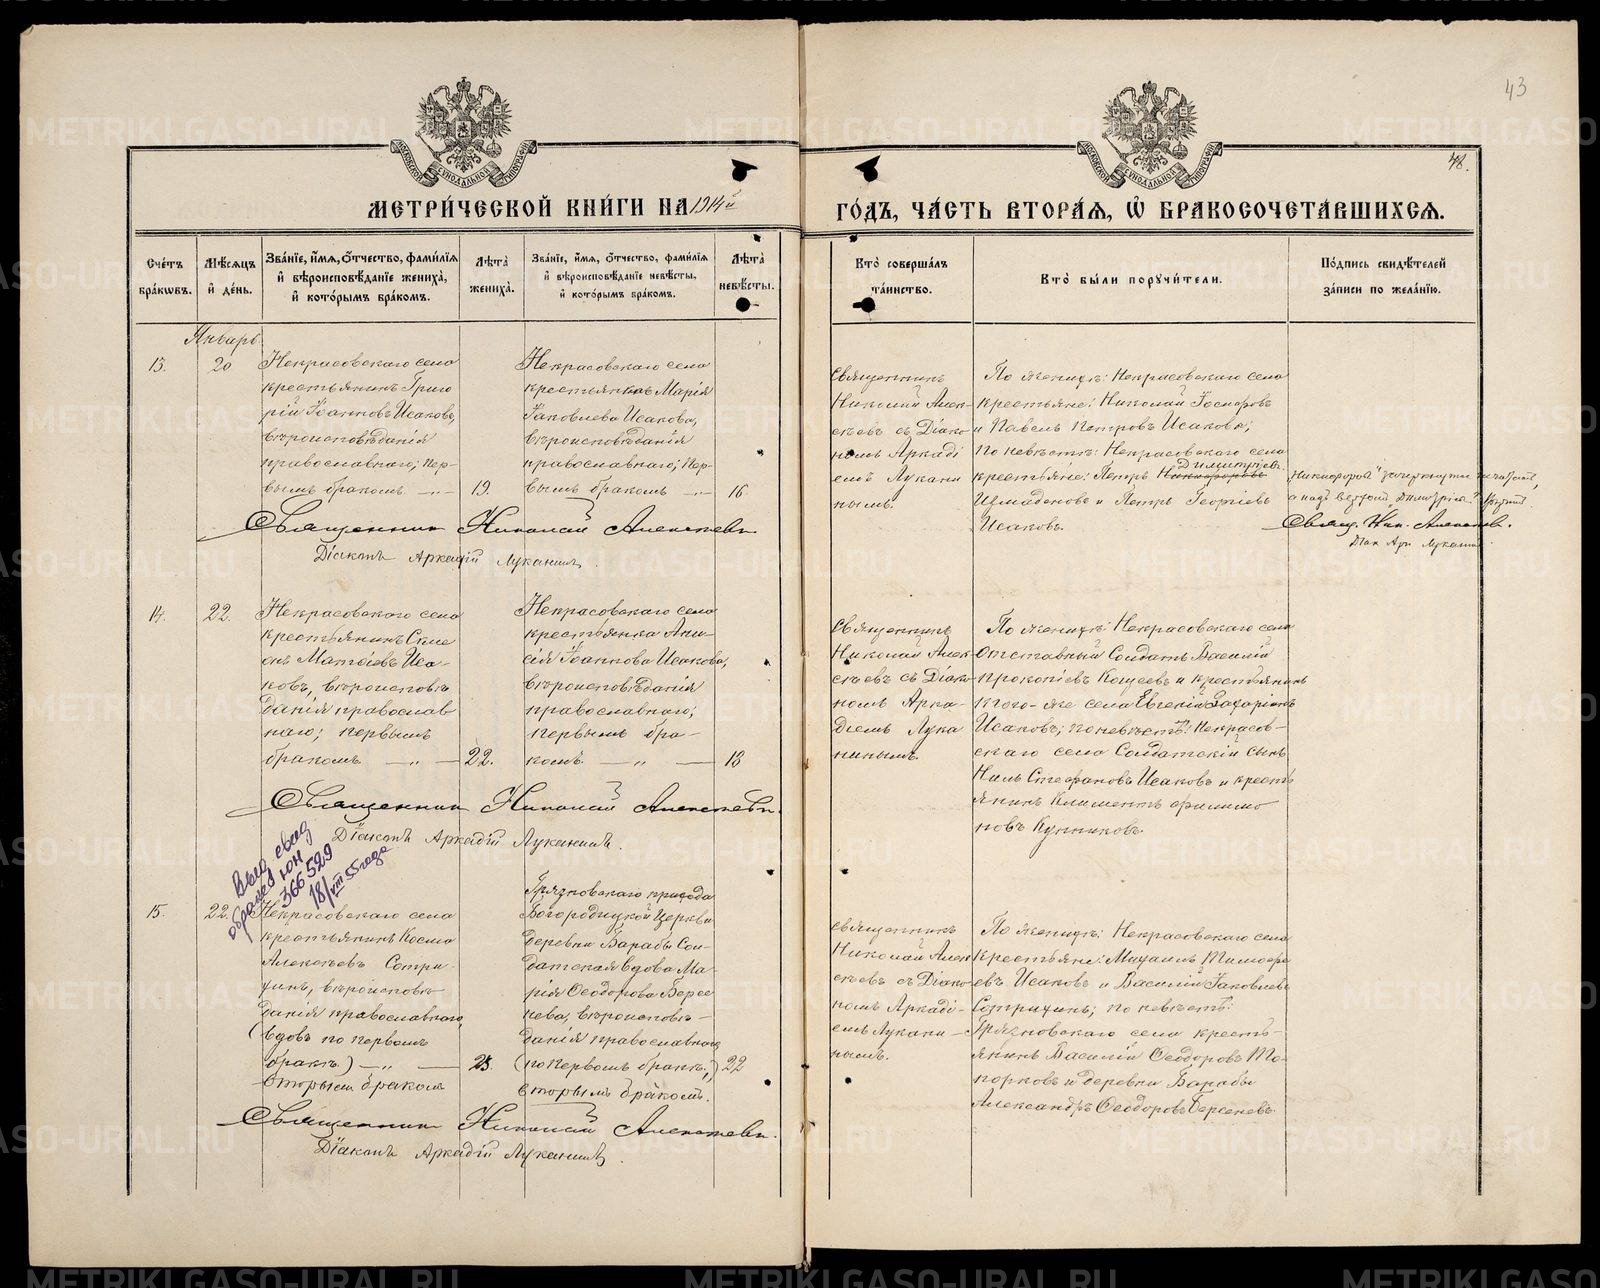 43
48.
МЕТРИЧЕСКОЙ КНИГИ НА 1914й ГОДЪ, ЧАСТЬ ВТОРАЯ, Ѡ БРАКОСОЧЕТАВШИХСЯ.
Счетъ браковъ.
Мѣсяцъ и день.
Званіе, имя, отчество, фамилія
и вѣроисповѣданіе жениха,
и которымъ бракомъ.
Лѣта жениха.
Званіе, имя, отчество, фамилія
и вѣроисповѣданіе невѣсты,
и которымъ бракомъ.
Лѣта невѣсты.
Кто совершалъ
таинство.
Кто были поручители.
Подпись свидѣтелей
записи по желанію.
Январь.
13.
20
Некрасовскаго села
крестьянинъ Григо
рій Іоанновъ Исаковъ,
вѣроисповѣданія
православнаго; пер-
вымъ бракомъ — „ —
19.
Некрасовскаго села
крестьянка Марія
Іаковлева Исакова,
вѣроисповѣданія
православнаго; пер-
вымъ бракомъ — „ —
16
Священникъ
Николай Алек-
сѣевъ съ Діако
номъ Аркаді
емъ Лукани
нымъ.
По женихѣ: Некрасовскаго села
крестьяне: Николай Іосифовъ
и Павелъ Петровъ Исаковы;
по невѣстѣ: Некрасовскаго села
Димитріевъ
крестьяне: Петръ Никифоровъ
Измоденовъ и Петръ Георгіевъ
Исаковъ.
Священникъ Николай Алексѣевъ
Діаконъ Аркадій Луканинъ.
Свящ. Ник. Алексѣевъ.
Діак. Арк. Луканинъ
14.
22.
Некрасовскаго села
крестьянинъ Симе
онъ Матѳіевъ Иса-
ковъ, вѣроисповѣ
данія православ
наго; первымъ
бракомъ — „ —
22.
Некрасовскаго села
крестьянка Ани-
сія Іоаннова Исакова,
вѣроисповѣданія
православнаго;
первымъ бра-
комъ — „ —
18
Священникъ
Николай Алек-
сѣевъ съ Діако-
номъ Арка-
діемъ Лука
нинымъ.
По женихѣ: Некрасовскаго села
Отставный Солдатъ Василій
Прокопіевъ Кощеевъ и крестьянинъ
того-же села Евгеній Захаріинъ
Исаковъ; по невѣстѣ: Некрасов-
скаго села Солдатскій сынъ
Нилъ Стефановъ Исаковъ и кресть
янинъ Климентъ Филимо
новъ Купниковъ.
Священникъ Николай Алексѣевъ.
Діаконъ Аркадій Луканинъ.
Выд. свид
о браке I ЮН
366529
18/VIII 55 года
15.
22.
Некрасовскаго села
крестьянинъ Косма
Алексѣевъ Сотри-
хинъ, вѣроисповѣ-
данія православнаго,
(вдовъ по первомъ
бракѣ) — „ —
вторымъ бракомъ
25.
Грязновскаго прихода
Богородицкой Церкви
деревни Барабы Сол-
датская вдова Ма-
рія Ѳеодорова Берсе
нева, вѣроисповѣ-
данія православнаго
(по первомъ бракѣ,)
вторымъ бракомъ.
22
Священникъ
Николай Алек
сѣевъ съ Діако
номъ Аркаді-
емъ Лукани-
нымъ.
По женихѣ: Некрасовскаго села
крестьяне: Михаилъ Тимофе
евъ Исаковъ и Василій Іаковлевъ
Сотрихинъ; по невѣстѣ:
Грязновскаго села кресть-
янинъ Василій Ѳеодоровъ То-
порковъ и деревни Барабы
Александръ Ѳеодоровъ Берсеневъ.
Священникъ Николай Алексѣевъ.
Діаконъ Аркадій Луканинъ.